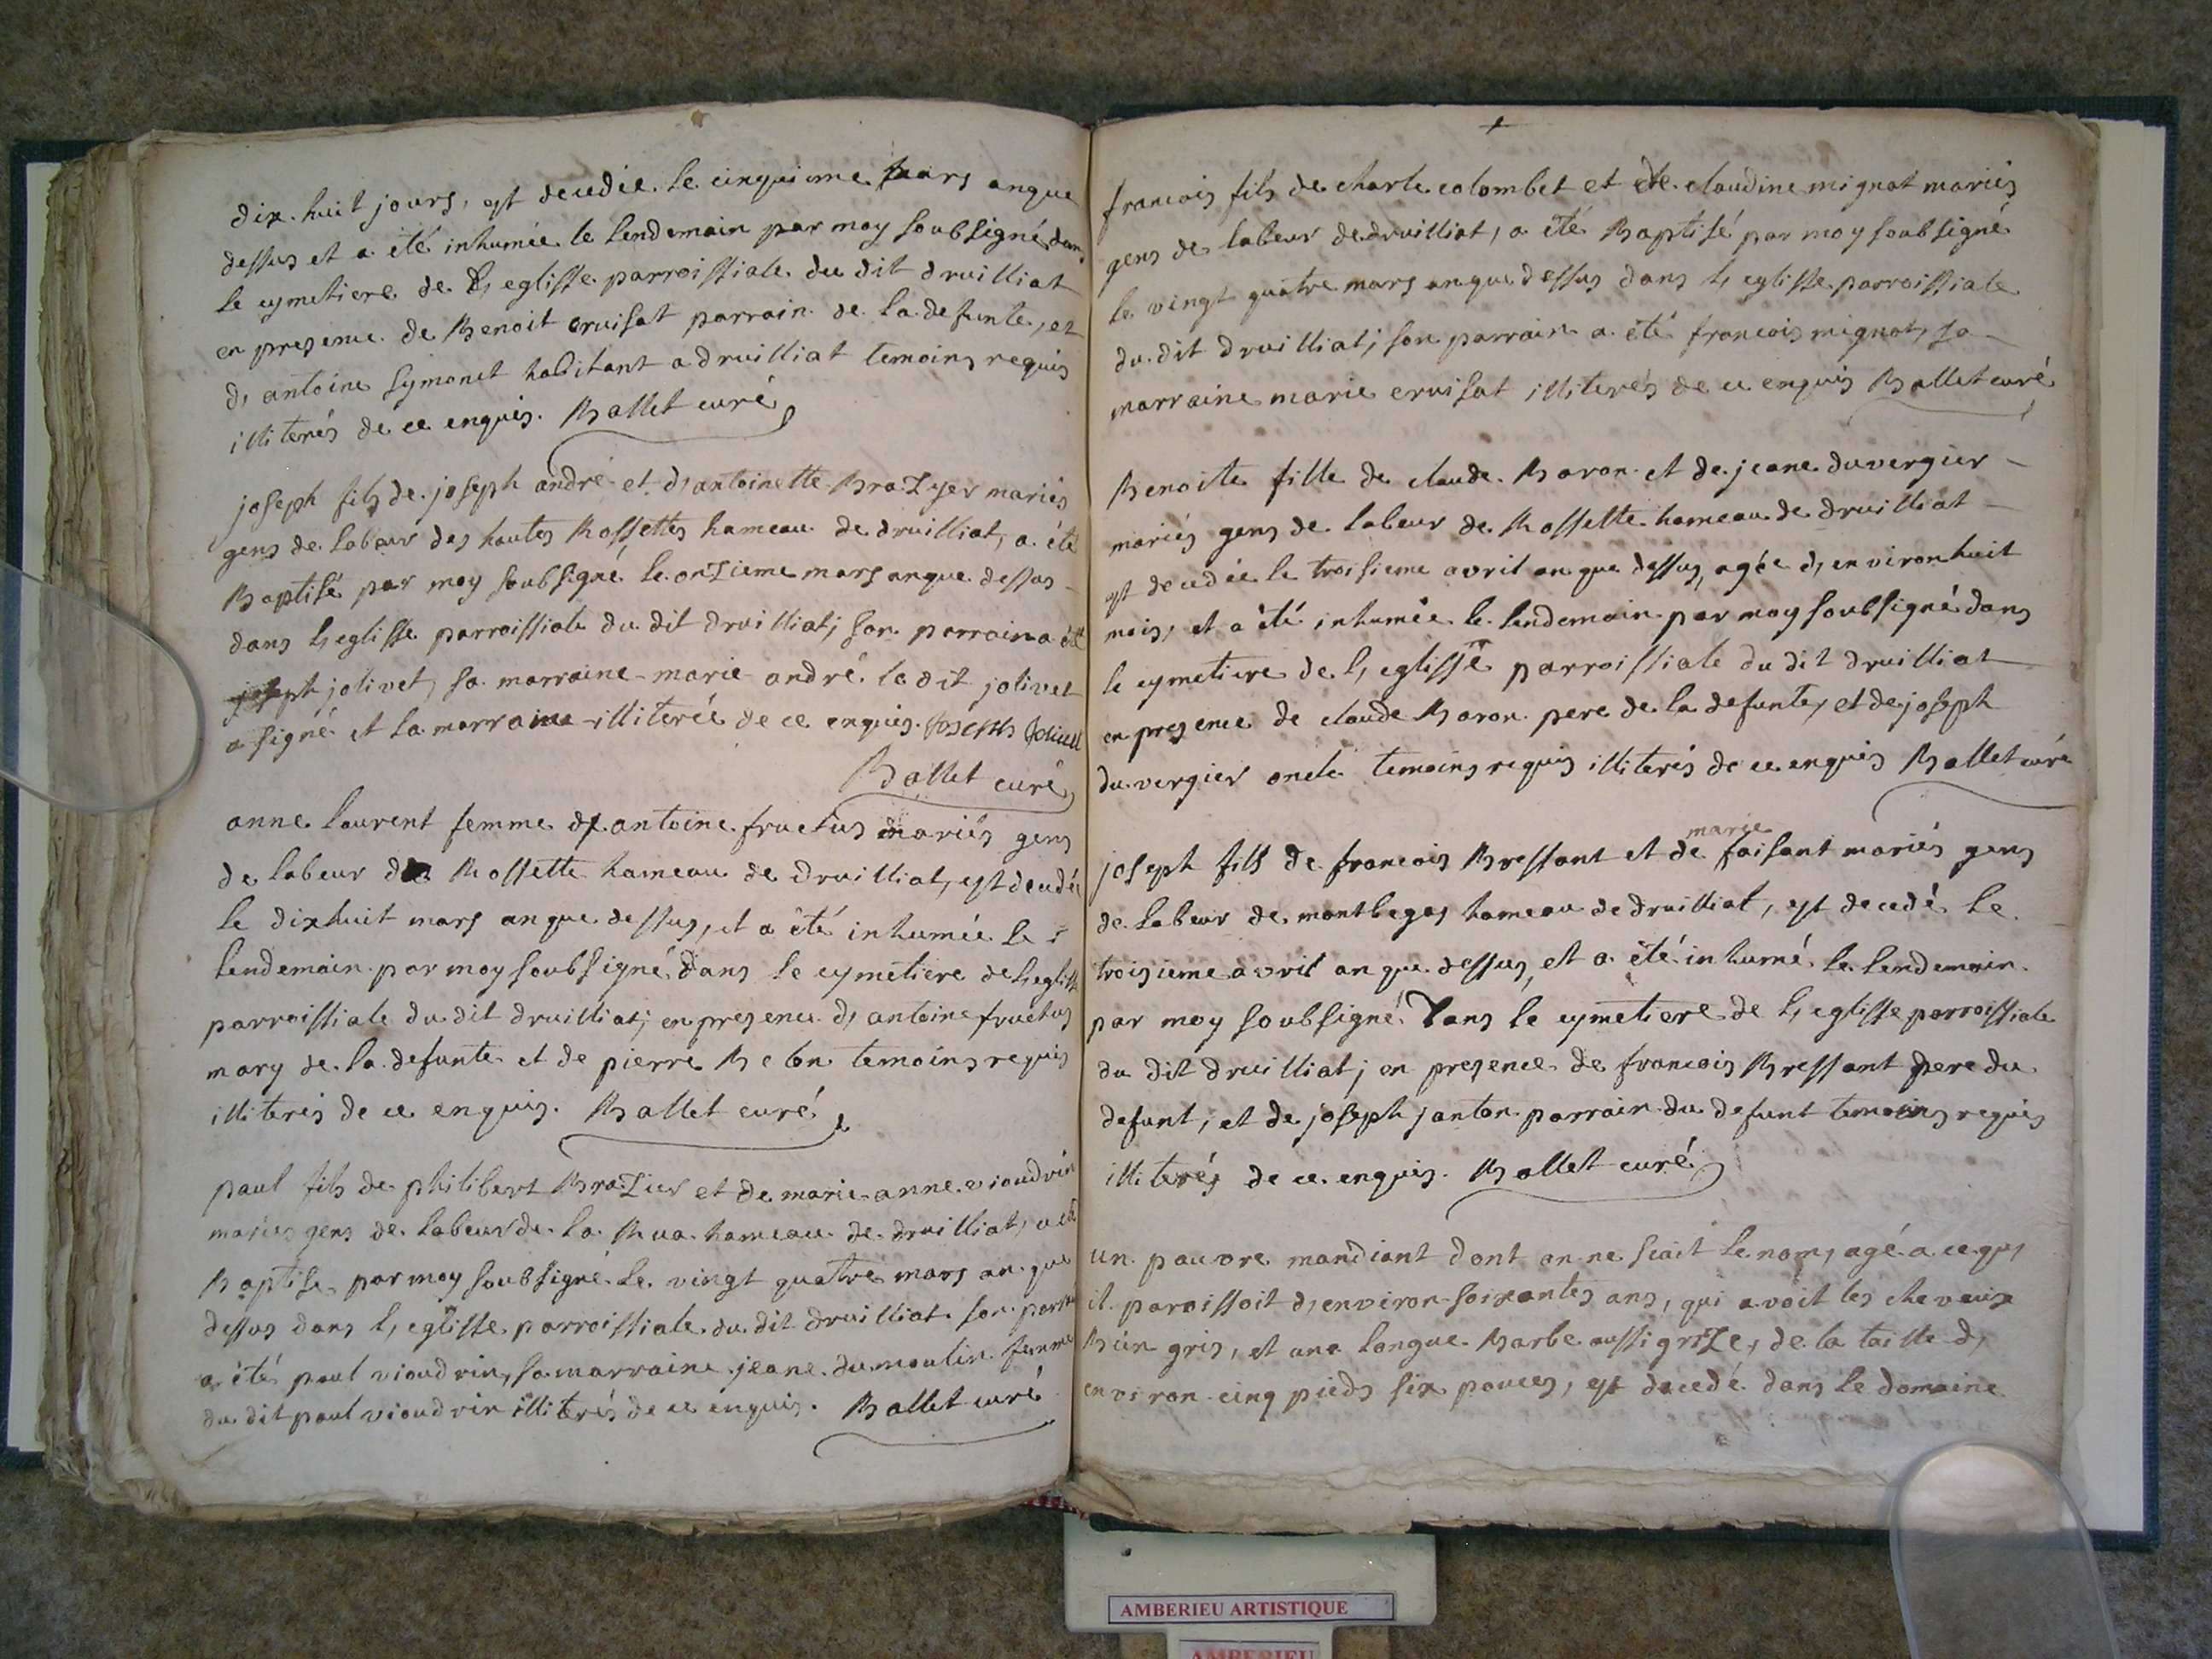 dix huit jours, est decedée le cinquieme mars anque
dessus et a été inhumée le lendemain par moy soubsigné dans
le cymetiere de l, eglisse parroissiale du dit druilliat
en presence de Benoit cruisat parrain de la defunte, et
d, antoine symonet habitant a druilliat temoins requis
illiterés de ce enquis. Ballet curé
joseph fils de joseph andré et d, antoinette Brazyer mariés
gens de labeur des hautes Rossettes hameau de druilliat, a été
Baptisé par moy soubsigné le onzieme mars anque dessus
dans l, eglisse parroissiale du dit druilliat; son parrain a été
joseph jolivet, sa marraine marie andré le dit jolivet
a signé et la marraine illiterée de ce enquis. joseph
Ballet curé
anne laurent femme d, antoine fructus mariés gens
de labeur de Rossette hameau de druilliat, est decedée
le dixhuit mars anque dessus, et a été inhumée le
lendemain par moy soubsigné dans le cymetiere de l, eglisse
parroissiale du dit druilliat; en presence d, antoine fructus
mary de la defunte et de pierre temoins requis
illiterés de ce enquis. Ballet curé
paul fils de philibert Brazier et de marie anne vioudrin
mariés gens de labeur de la Rua hameau de druilliat, a été
Baptisé par moy soubsigné le vingt quatre mars an que
dessus dans l, eglisse parroissiale du dit druilliat son parrain
a été paul vioudrin, sa marraine jeane dumoulin femme
du dit paul vioudrin illiterés de ce enquis. Ballet curé
francois fils de charle colombet et de claudine mignat mariés
gens de labeur de druilliat, a été Baptisé par moy soubsigné
le vingt quatre mars anque dessus dans l, eglisse parroissiale
du dit druilliat; son parrain a été francois mignat, sa
marraine marie cruisat illiterés de ce enquis Ballet curé
Benoite fille de claude Baron et de jeane duvergier
mariés gens de labeur de Rossette hameau de druilliat
est decedée le troisieme avril an que dessus, agée d, environ huit
mois, et a été inhumée le lendemain par moy soubsigné dans
le cymetiere de l, eglisse parroissiale du dit druilliat
en presence de claude Baron pere de la defunte, et de joseph
duvergier oncle temoins requis illiterés de ce enquis Ballet curé
joseph fils de francois Bressant et de marie faisant mariés gens
de labeur de montbegas hameau de druilliat, est decedé le
troisieme avril an que dessus, et a été inhumé le lendemain
par moy soubsigné Dans le cymetiere de l, eglisse parroissiale
du dit druilliat; en presence de francois Bressant pere du
defunt, et de joseph janton parrain du defunt temoins requis
illiterés de ce enquis. Ballet curé
un pauvre mandiant dont on ne scait le nom, agé a ce qu,
il paroissoit d, environ soixantes ans, qui avoit les cheveuix
Bien gris, et une longue Barbe aussi grize, de la taille d,
environ cinq pieds six pouces, est decedé dans le domaine
AMBERIEU ARTISTIQUE
AMBERIEU